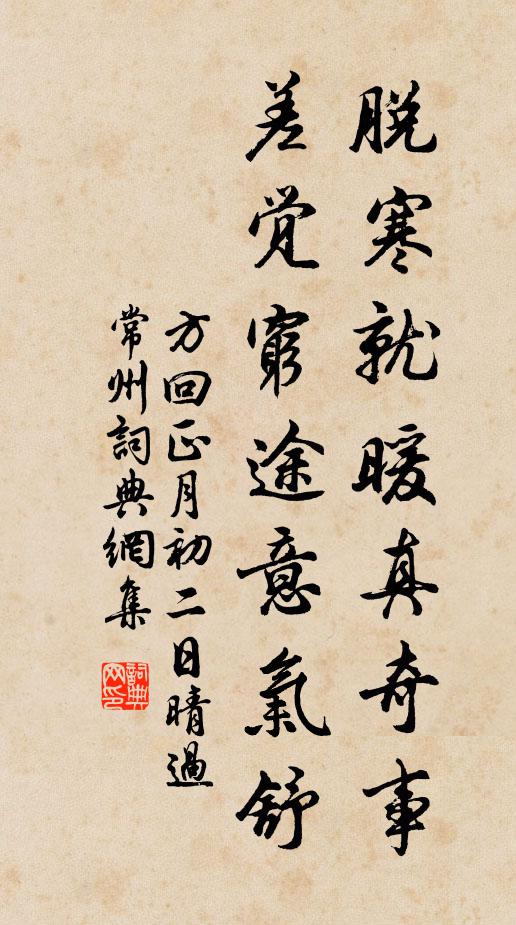 脱寒就暖真奇事
差覺窮途意氣舒
方回正月初二日晴過
常州詞典網集
詞典
网印